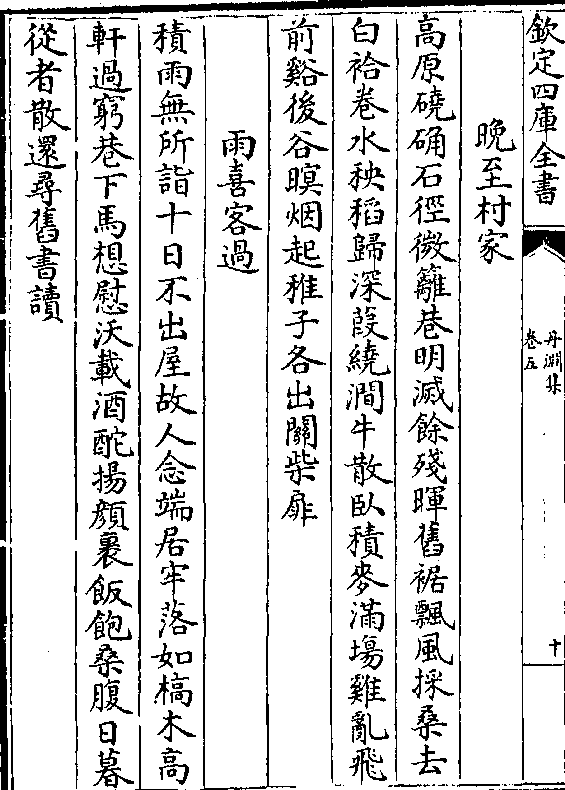 欽定四庫全書
丹淵集
卷五
十
晚至村家
高原磽确石徑微籬巷明滅餘殘暉舊裾飄風採桑去
白袷卷水秧稻歸深葭繞澗牛散臥積麥滿場雞亂飛
前谿後谷暝烟起稚子各出關柴扉
雨喜客過
積雨無所詣十日不出屋故人念端居牢落如槁木高
軒過窮巷下馬想慰沃載酒酡揚顔裹飯飽桑腹日暮
從者散還尋舊書讀